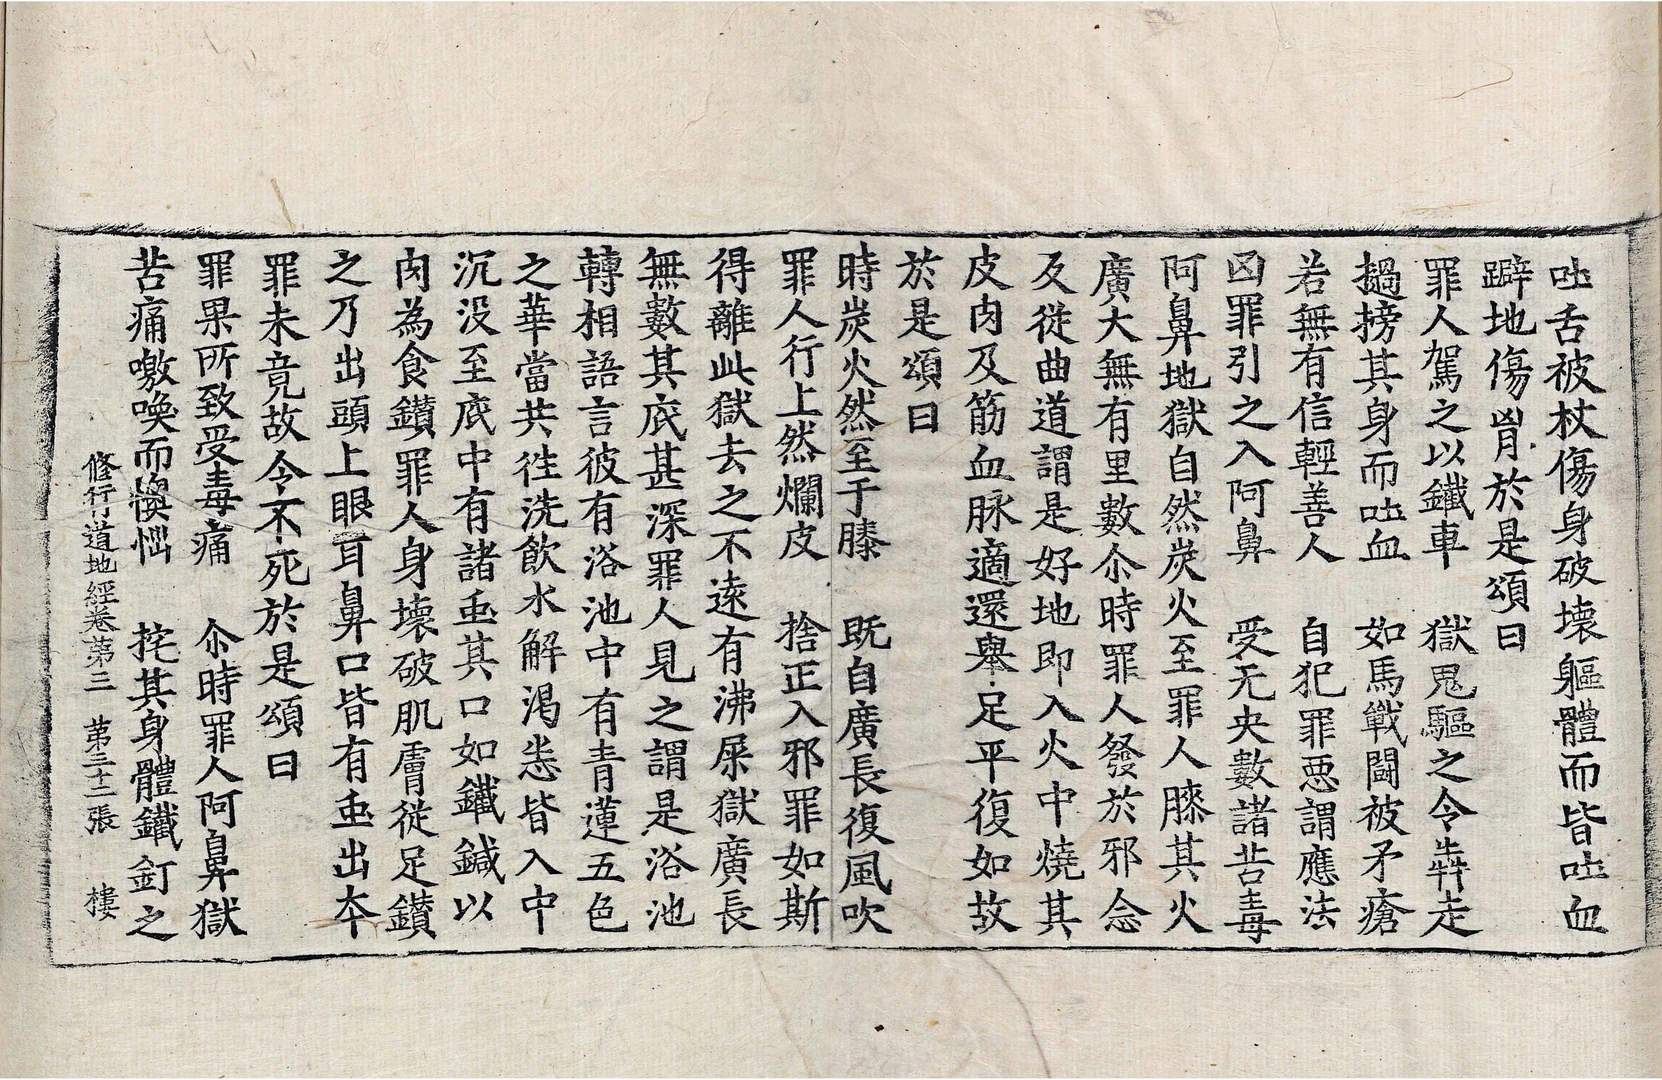 吐舌被杖傷身破壊軀體而皆吐血
躃地傷胷於是頌曰
罪人駕之以鐵車　獄鬼驅之令犇走
撾搒其身而吐血　如馬戰鬪被矛瘡
若無有信輕善人　自犯罪惡謂應法
凶罪引之入阿鼻　受无央數諸苦毒
阿鼻地獄自然炭火至罪人膝其火
廣大無有里數尒時罪人發於邪念
反從曲道謂是好地即入火中燒其
皮肉及筋血脉適還舉足平復如故
於是頌曰
時炭火然至于膝　既自廣長復風吹
罪人行上然爛皮　捨正入邪罪如斯
得離此獄去之不遠有沸屎獄廣長
無數其底甚深罪人見之謂是浴池
轉相語言彼有浴池中有青蓮五色
之華當共往洗飲水解渴悉皆入中
沉没至底中有諸虫其口如鐵鍼以
肉為食鑽罪人身壞破肌膚從足鑽
之乃出頭上眼耳鼻口皆有虫出夲
罪未竟故令不死於是頌曰
罪果所致受毒痛　尒時罪人阿鼻獄
苦痛噭喚而懊惱　挓其身體鐵釘之
修行道地經卷第三　第三十二張　樓